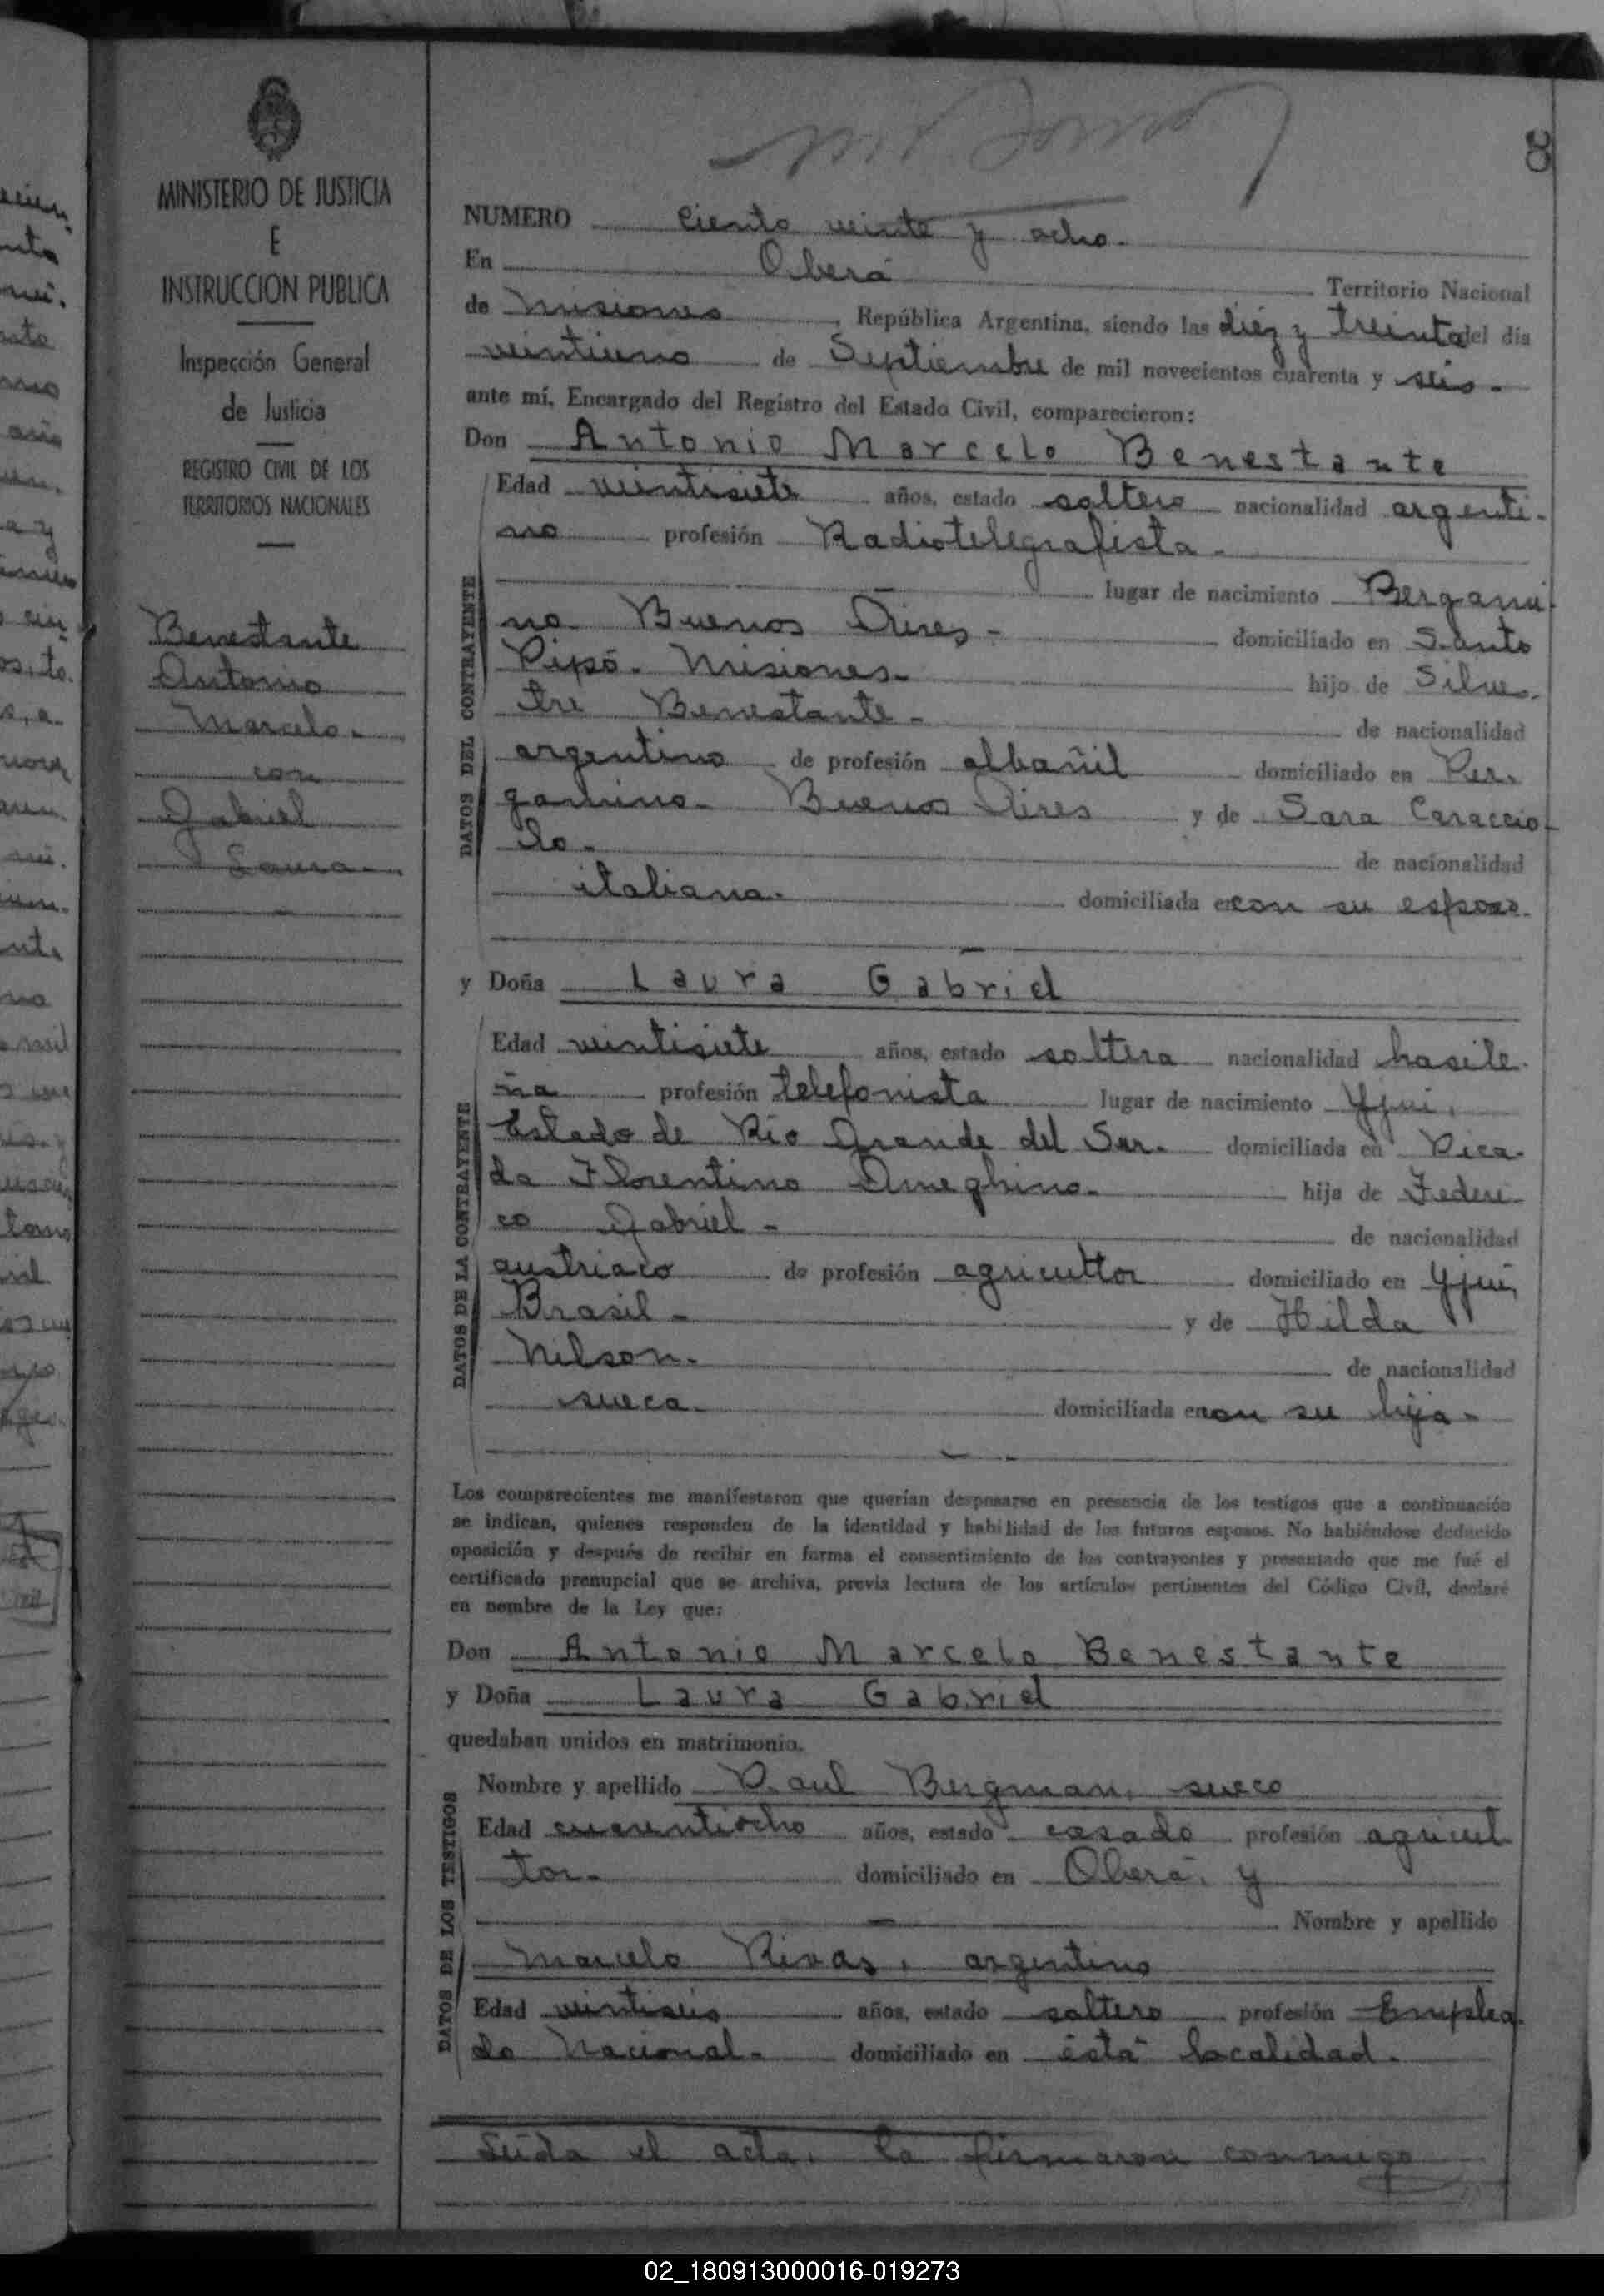 MINISTERIO DE JUSTICIA
E
INSTRUCCION PUBLICA
Inspección General
de Justicia
REGISTRO CIVIL DE LOS
TERRITORIOS NACIONALES
Benestante
Antonio
Marcelo.
con
Gabriel
Laura
NUMERO ciento veinte y ocho.
En Oberá Territorio Nacional
de Misiones, República Argentina, siendo las diéz y treinta del día
veintiuno de Septiembre de mil novecientos cuarenta y seis.
ante mí, Encargado del Registro del Estado Civil, comparecieron:
Don Antonio Marcelo Benestante
DATOS DEL CONTRAYENTE
Edad veintisiete años, estado soltero nacionalidad argenti-
no profesión Radiotelegrafista.
lugar de nacimiento Bergami
no. Buenos Aires- domiciliado en Santo
Pipó. Misiones. hijo de Silves.
tre Benestante- de nacionalidad
argentino de profesión albañil domiciliado en Per.
gamino. Buenos Aires y de Sara Caraccio-
lo. de nacionalidad
italiana. domiciliada en con su esposo.
y Doña Laura Gabriel
DATOS DE LA CONTRAYENTE
Edad veintisiete años, estado soltera nacionalidad brasile.
ña profesión telefonista lugar de nacimiento Yjui,
Estado de Río Grande del Sur. domiciliada en Pica.
da Florentino Ameghino. hija de Federi-
co Gabriel- de nacionalidad
austriaco de profesión agricultor domiciliado en Yjui,
Brasil- y de Hilda
Nilson. de nacionalidad
sueca. domiciliada en con su hija-
Los comparecientes me manifestaron que querían desposarse en presencia de los testigos que a continuación
se indican, quienes responden de la identidad y habilidad de los futuros esposos. No habiéndose deducido
oposición y después de recibir en forma el consentimiento de los contrayentes y presentado que me fué el
certificado prenupcial que se archiva, previa lectura de los artículos pertinentes del Código Civil, declaré
en nombre de la Ley que:
Don Antonio Marcelo Benestante
y Doña Laura Gabriel
quedaban unidos en matrimonio.
DATOS DE LOS TESTIGOS
Nombre y apellido Raul Bergman, sueco
Edad cuarentiocho años, estado casado profesión agricul
tor. domiciliado en Oberá, y
Nombre y apellido
Marcelo Rivas, argentino
Edad veintiseis años, estado soltero profesión Emplea.
do Nacional. domiciliado en ésta localidad.
Leída el acta, la firmaron conmigo
02_180913000016-019273